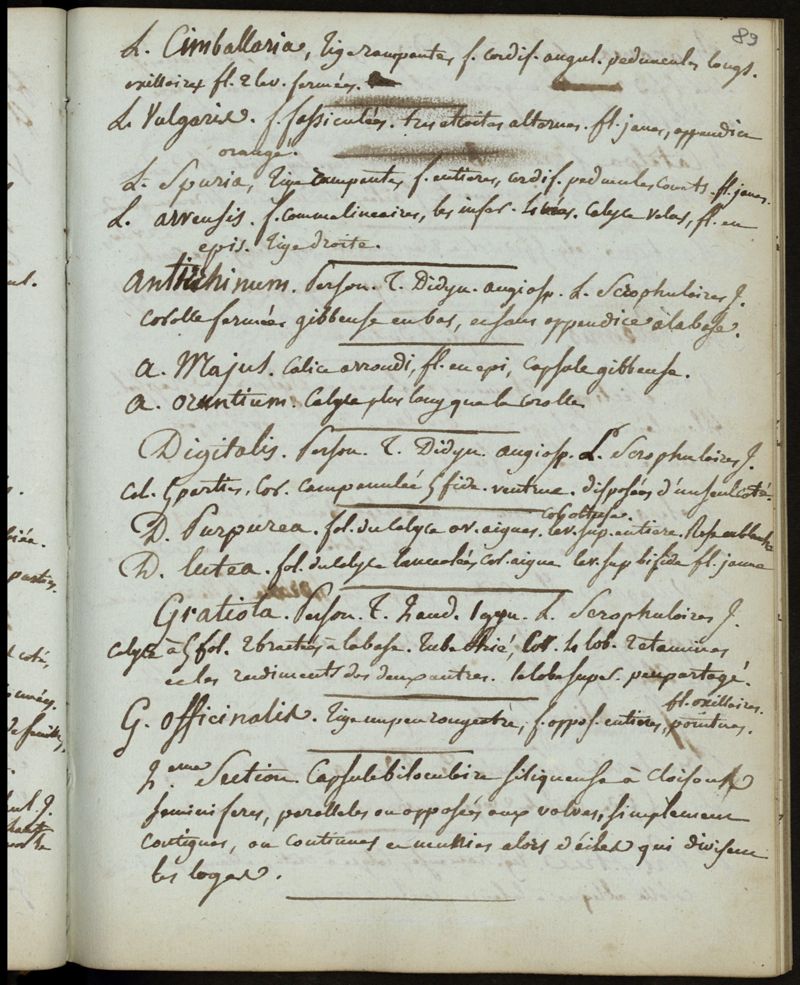 89
L. Cimballaria, Tige rampantes f. cordif. angul. peduncules longs.
axillaires fl. 2 lev. fermées.
L. Vulgaris. f. fassiculées. tres etroites alternes. fl. janes, appendice
orangé.
L. Spuria, Tige rampantes, f. entieres, cordif. peduncules courts. fl. janes.
L. arvensis. f. comme lineaires, les infer. Calyce velus, fl. en
epis. Tige droite.
Antirrhinum. Person. T. Didyn. angiosp. L. Scrophulaires J.
corolle fermées gibbeuse en bas, ensans appendice à la base.
A. Majus. Calice arrondi, fl. en epi, Capsule gibbeuse.
A. oruntium. Calyce plus long que la corolle
Digitalis. Person. T. Didyn. angiosp. L. Scrophulaires J.
Cal. 5 parties, Cor. campanulée 5 fide. ventrue. disposées d'un seul coté.
cor obtuse.
D. Purpurea. fol. du calyce ov. aigues. lev. sup. entiere.
D. lutea. fol. du calyce lanceolées cor. aigue lev. sup bifide fl. jaune
Gratiola. Person. T. 2 and. 1 gyn. L. Scrophulaires J.
Calyce à 5 fol. 2 bractées à la base. Tube strié, Cor. 4 lob. 2 etamines
et les rudiments des deux autres. le lobe super. peu partagé.
fl. axillaires.
G. officinalis. Tige un peu rougeatre, f. oppos. entieres, pointues.
2.eme Section. Capsule biloculaire siliqueuse à cloisons
seminiferes, paralleles ou opposées aux valves, simplement
contigues, ou continues et munies alors d'ailes qui divisent
les loges.